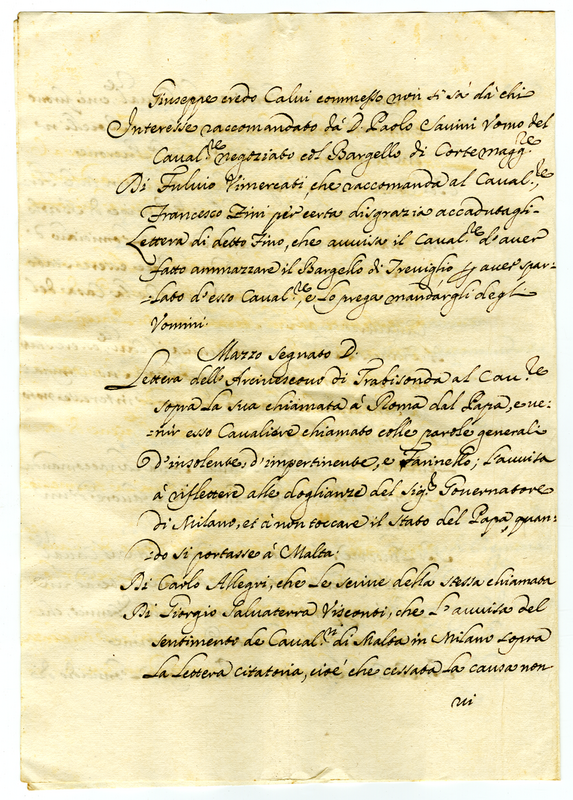 Giuseppe credo Calui commesso non si sà dà chi
Interesse raccomandato dà D. Paolo Sauini Vomo del
Caval.re negoziato col Bargello di Cortemagg.re
Di Fuluio Vimercati, che raccomanda al Caval.re
Francesco Fini per certa disgrazia accadutagli
Lettera di detto Fino, che auuisa il Caval.re d'auer
fatto ammazzare il Bargello di Treuiglio p auer spar=
=lato d'esso Caval.re, e lo prega mandargli degli
Vomini.
Mazzo segnato D.
Lettera dell Arciuescouo di Trabisonda al Cau.re
sopra la sua chiamata à Roma dal Papa, e ue=
=nir esso Caualiere chiamato colle parole generali
d'insolente, d'impertinente, e Farinello; l'auuisa
à riflettere alle doglianze del Sig.r Gouernatore
di Milano, et à non toccare il Stato del Papa, quan=
do si portasse à Malta;
Di Carlo Allegri, che le scriue della stessa chiamata
Di Giorgio Saluaterra Visconti, che l'auuisa del
sentimento de Caval.ri di Malta in Milano sopra
la lettera citatoria, cioè che cessata la causa non
ui